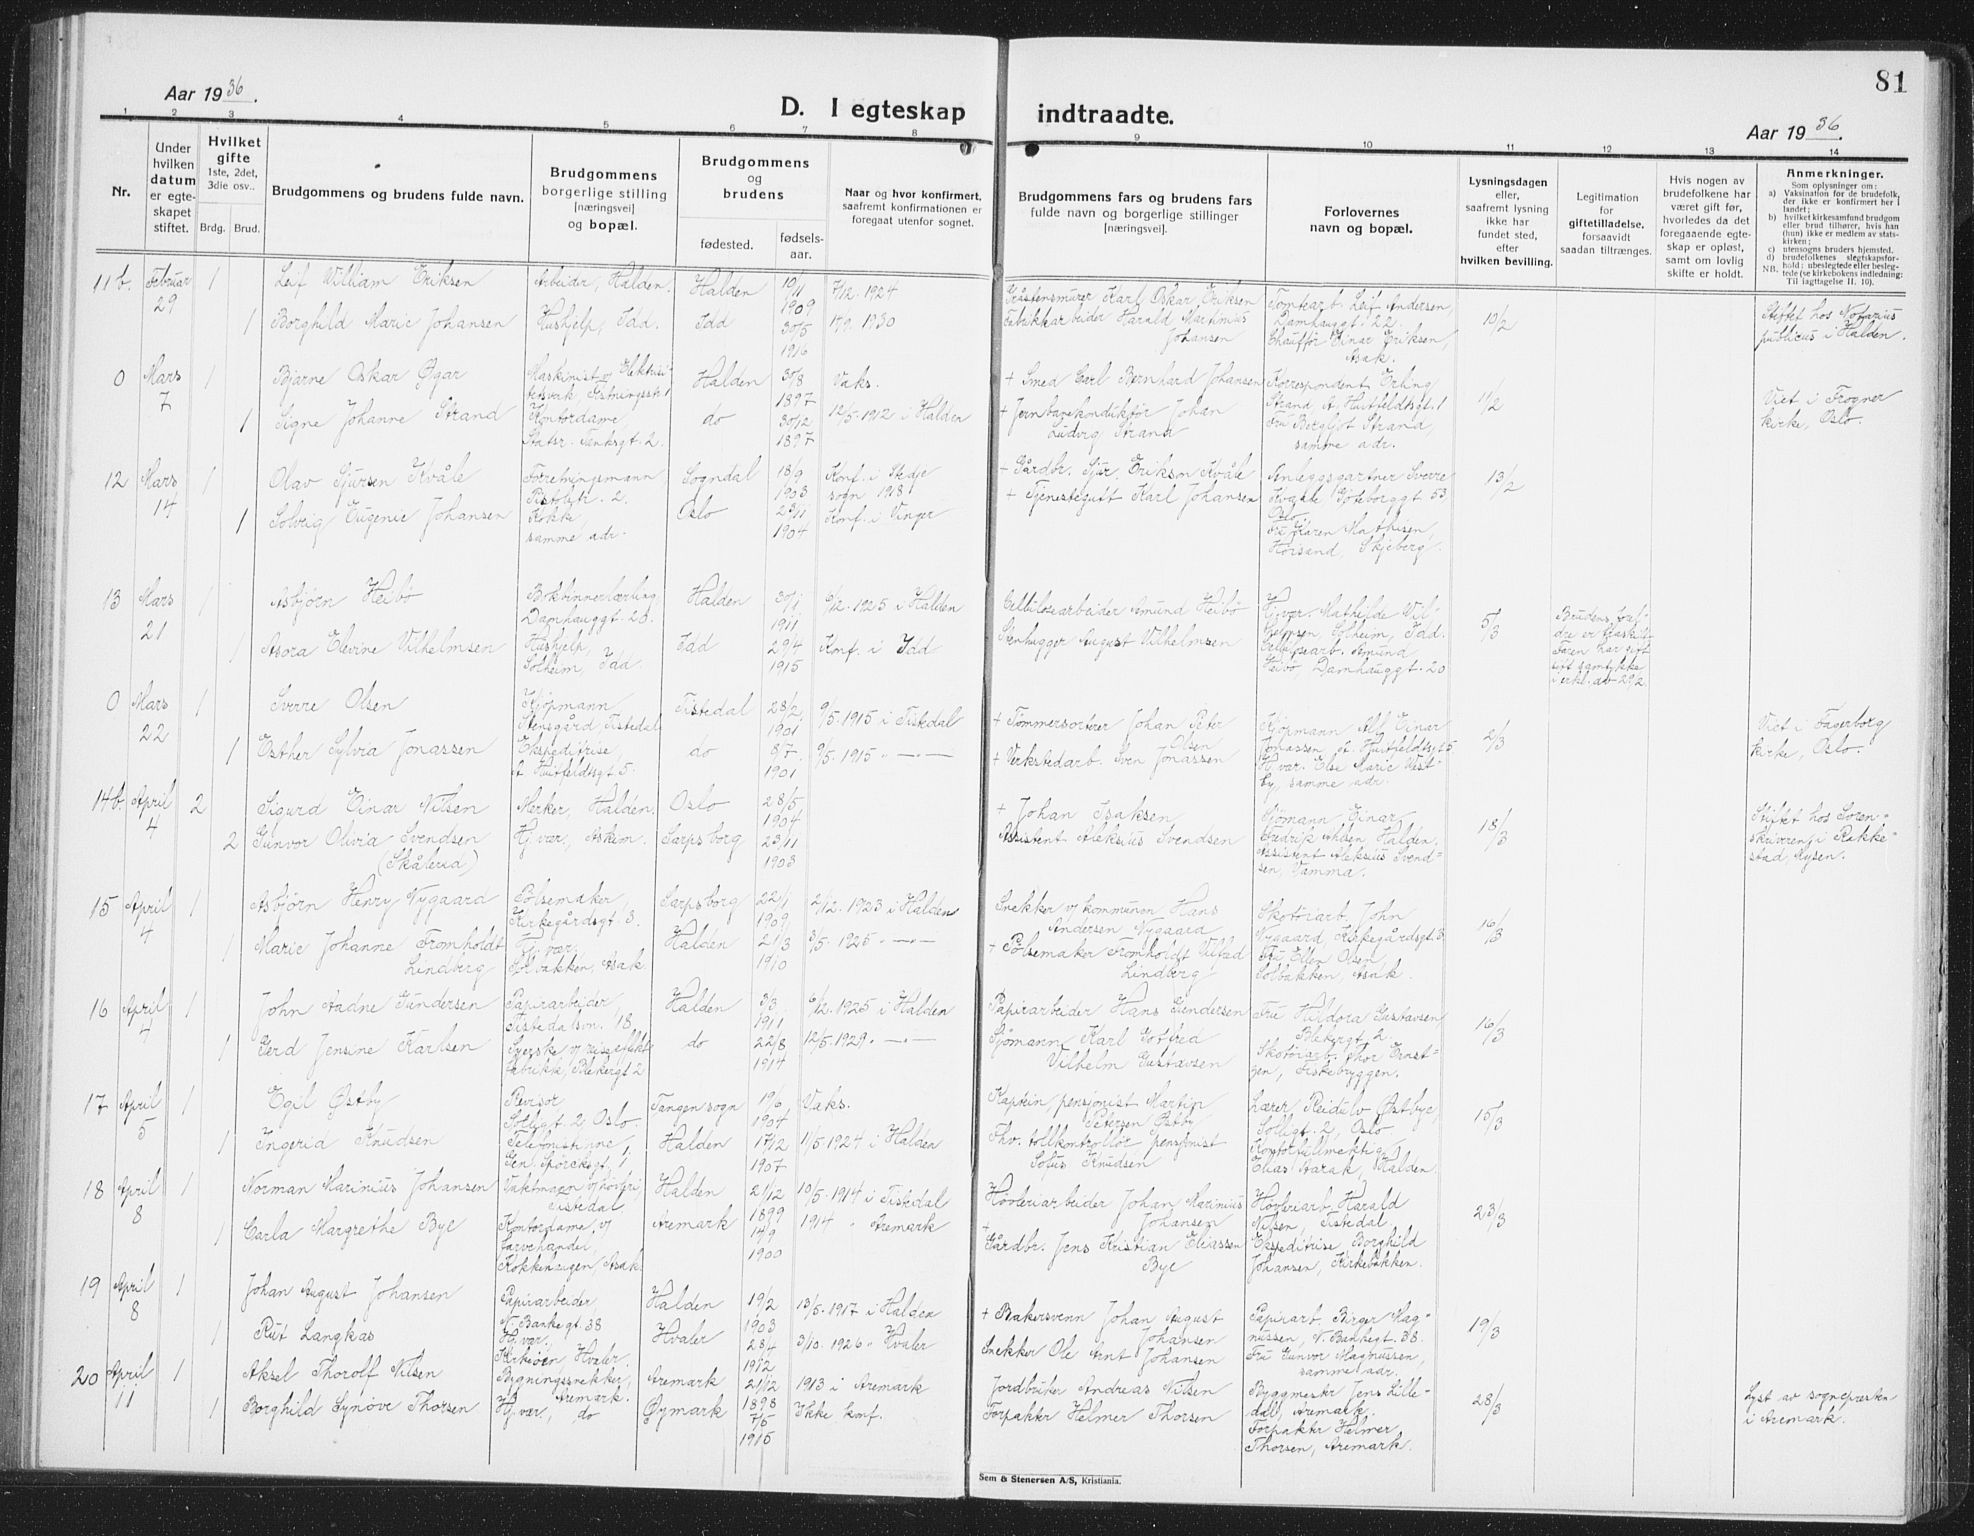 81
Aar 1936.
D. I egteskap indtraadte.
Aar 1936.
1 2 3 4 5 6 7 8 9 10 11 12 13 14
Nr.
Under hvilken datum er egte-skapet stiftet.
Hvilket gifte 1ste, 2det, 3die osv..
Brdg. Brud.
Brudgommens og brudens fulde navn.
Brudgommens borgerlige stilling [næringsvei] og bopæl.
Brudgommens og brudens
fødested. fødsels-aar.
Naar og hvor konfirmert, saafremt konfirmationen er foregaat utenfor sognet.
Brudgommens fars og brudens fars fulde navn og borgerlige stillinger [næringsvei].
Forlovernes navn og bopæl.
Lysningsdagen eller, saafremt lysning ikke har fundet sted, efter hvilken bevilling.
Legitimation for giftetilladelse, forsaavidt saadan tiltrænges.
Hvis nogen av brudefolkene har været gift før, hvorledes da det foregaaende egte-skap er opløst, samt om lovlig skifte er holdt.
Anmerkninger.
Som oplysninger om:
a) Vaksination for de brudefolk, der ikke er konfirmert her i landet;
b) hvilket kirkesamfund brudgom eller brud tilhører, hvis han (hun) ikke er medlem av stats-kirken;
c) utensogns bruders hjemsted.
d) brudefolkenes slegtskapsfor-hold: ubeslegtede eller besleg-tede (se kirkebokens indledning:
NB. Til iagttagelse II. 10).
11b. Februar 29 1 Leif William Eriksen Arbeider, Halden. Halden 10/1 1909 7/12. 1924 Gråstensmurer Karl Oskar Eriksen Tomtearb. Leif Andersen, Damhauggt. 22. 10/2 Stiftet hos Notarius publicus i Halden.
1 Borghild Marie Johansen Hushjelp, Idd. Idd 30/5 1916 1930 Fabrikkarbeider Harald Martinius Johansen Chauffør Einar Eriksen, Asak.
0 Mars 7 1 Bjarne Oskar Øgar Maskinist v/ Elektrisi- Halden 30/8 1897 Vaks. + Smed Carl Bernhard Johansen Korrespondent Erling Strand, A. Huitfeldtsgt. 1 11/2 Viet i Frogner kirke, Oslo.
1 Signe Johanne Strand Kontordame, Statsr. 2. do 30/12 1897 12/5. 1912 i Halden + Jernbanekonduktør Johan Ludvig Strand Fru Bergljot Strand, samme adr.
12 Mars 14 1 Olav Sjursen Kvåle Forretningsmann, 2. Sogndal 18/9 1903 Konf. i sogn 1918 + Gårdbr. Sjur Erikson Kvåle Anleggsgartner Sverre Kvaale, Gøteborggt 53 Oslo. 13/2
1 Solveig Eugenie Johansen Kokke, samme adr. Oslo 23/11 1904 Konf. i Vinger + Tjenestegutt Karl Johansen Fru Karen Mathisen, Høisand, Skjeberg.
13 Mars 21 1 Asbjørn Heibø Bokbinnerlærling, Damhauggt. 20. Halden 30/1 1911 6/12. 1925 i Halden Cellulosearbeider Amund Heibø Hj. vær. Mathilde Vil-helmsen, Solheim, Idd. 5/3 Brudens forel-dre er fraskilt. Faren har gift sitt samtykke i erkl. av 29/2.
1 Asora Elevine Vilhelmsen Hushjelp, Solheim, Idd Idd 29/4 1915 Konf. i Idd Stenhugger August Vilhelmsen Cellulosearb. Amund Heibø, Damhauggt. 20
0 Mars 22 1 Sverre Olsen Kjøpmann Stensgård, Tistedal Tistedal 28/2 1901 9/5. 1915 i Tistedal + Tømmersorterer Johan Peter Olsen Kjøpmann Alf Einar Jonassen, A. Huitfeldtsgt 5 2/3 Viet i Fagerborg kirke, Oslo.
1 Esther Sylvia Jonassen Ekspeditrise, A. Huitfeldtsgt 5. do 8/7. 1901 9/5. 1915 " — " — + Verkstedarb. Sven Jonassen Hj. vær. Else Marie Vest-by, samme adr.
14b. April 4 2 Sigurd Einar Nilsen Merker, Halden. Oslo 28/5 1904 + Johan Isaksen Sjømann Einar Fredrik Olsen, Halden. 18/3 Stiftet hos Soren-skriveren i Rakke-stad, Mysen.
2 Gunvor Olivia Svendsen (Skålerud) Hj. vær, Askim. Sarpsborg 23/11 1903 Assistent Aleksius Svendsen Assistent Aleksius Svend-sen, Vamma.
15 April 4 1 Asbjørn Henry Nygaard Pølsemaker, Kirkegårdsgt. 3. Sarpsborg 22/1 1909 2/12. 1923 i Halden Snekker v/ kommunen Hans Andersen Nygaard Skotøiarb. John Nygaard, Kirkegårdsgt. 3. 16/3
1 Marie Johanne Fromholdt Lindberg Hj. vær. Solbakken, Asak Halden 21/3 1910 3/5. 1925 " — " — + Pølsemaker Fromholdt Vilfred Lindberg Fru Ellen Olsen, Solbakken, Asak.
16 April 4 1 John Aadne Gundersen Papirarbeider, Tistedalsvn. 18. Halden 3/3. 1911 6/12. 1925 i Halden Papirarbeider Hans Gundersen Fru Hildora Gustavsen, Blekergt. 2 16/3
1 Gerd Jensine Karlsen Syerske v/ reiseeffekt-fabrikk, Blekergt 2 do 22/8 1914 12/5. 1929. " — " — Sjømann Karl Gotfred Vilhelm Gustavsen Skotøiarb. Thor Ernst-zen, Fiskebryggen.
17 April 5 1 Egil Østby Revisor Solligt. 2 Oslo. Tangen sogn 19/6 1904 Vaks. Kaptein, pensjonist Martin Petersen Østby Lærer Reidulv Østbye, Solligt. 2, Oslo 15/3
1 Ingerid Knudsen Telefonistinne, Gen. Spørcksgt, 1 Halden 17/12 1907 11/5 1924 i Halden Fhv. tollkontrollør pensjonist Sofus Knudsen Kontorfullmektig Elias Aarak, Halden.
18 April 8 1 Norman Marinius Johansen Vaktmann v/ høvleri, Tistedal Halden 21/12 1899 10/5. 1914 i Tistedal Høvleriarbeider Johan Marinius Johansen Høvleriarb. Harald Nilsen, Tistedal 23/3
1 Carla Margrethe Bye Kontordame v/ farvehandel, Kokkehaugen, Asak. Aremark 14/9 1900 1914 " Aremark + Gårdbr. Jens Kristian Eliassen Bye Ekspeditrise Borghild Johansen, Kirkebakken.
19 April 8 1 Johan August Johansen Papirarbeider, N. Bankegt. 38 Halden 19/2 1903 13/5. 1917 i Halden + Bakersvenn Johan August Johansen Papirarb. Birger Mag-nussen, N. Bankegt. 38 19/3
1 Rut Langkås Hj. vær. Kirkeøen, Hvaler. Hvaler 28/4 1912 3/10. 1926 " Hvaler Snekker Ole Arnt Johansen Fru Gunvor Magnussen, samme adr.
20 April 11 1 Aksel Thorolf Nilsen Bygningssnekker, Aremark. Aremark 21/12 1898 1913 i Aremark Jordbruker Andreas Nilsen Byggmestr. Jens Lille-dal, Aremark. 28/3 Lyst av sognepresten i Aremark.
1 Borghild Synøve Thorsen Hj. vær., do Øymark 7/5 1915 Ikke konf. Forpakter Helmer Thorsen Forpakter Helmer Thorsen, Aremark.
Sem & Stenersen A/S, Kristiania.